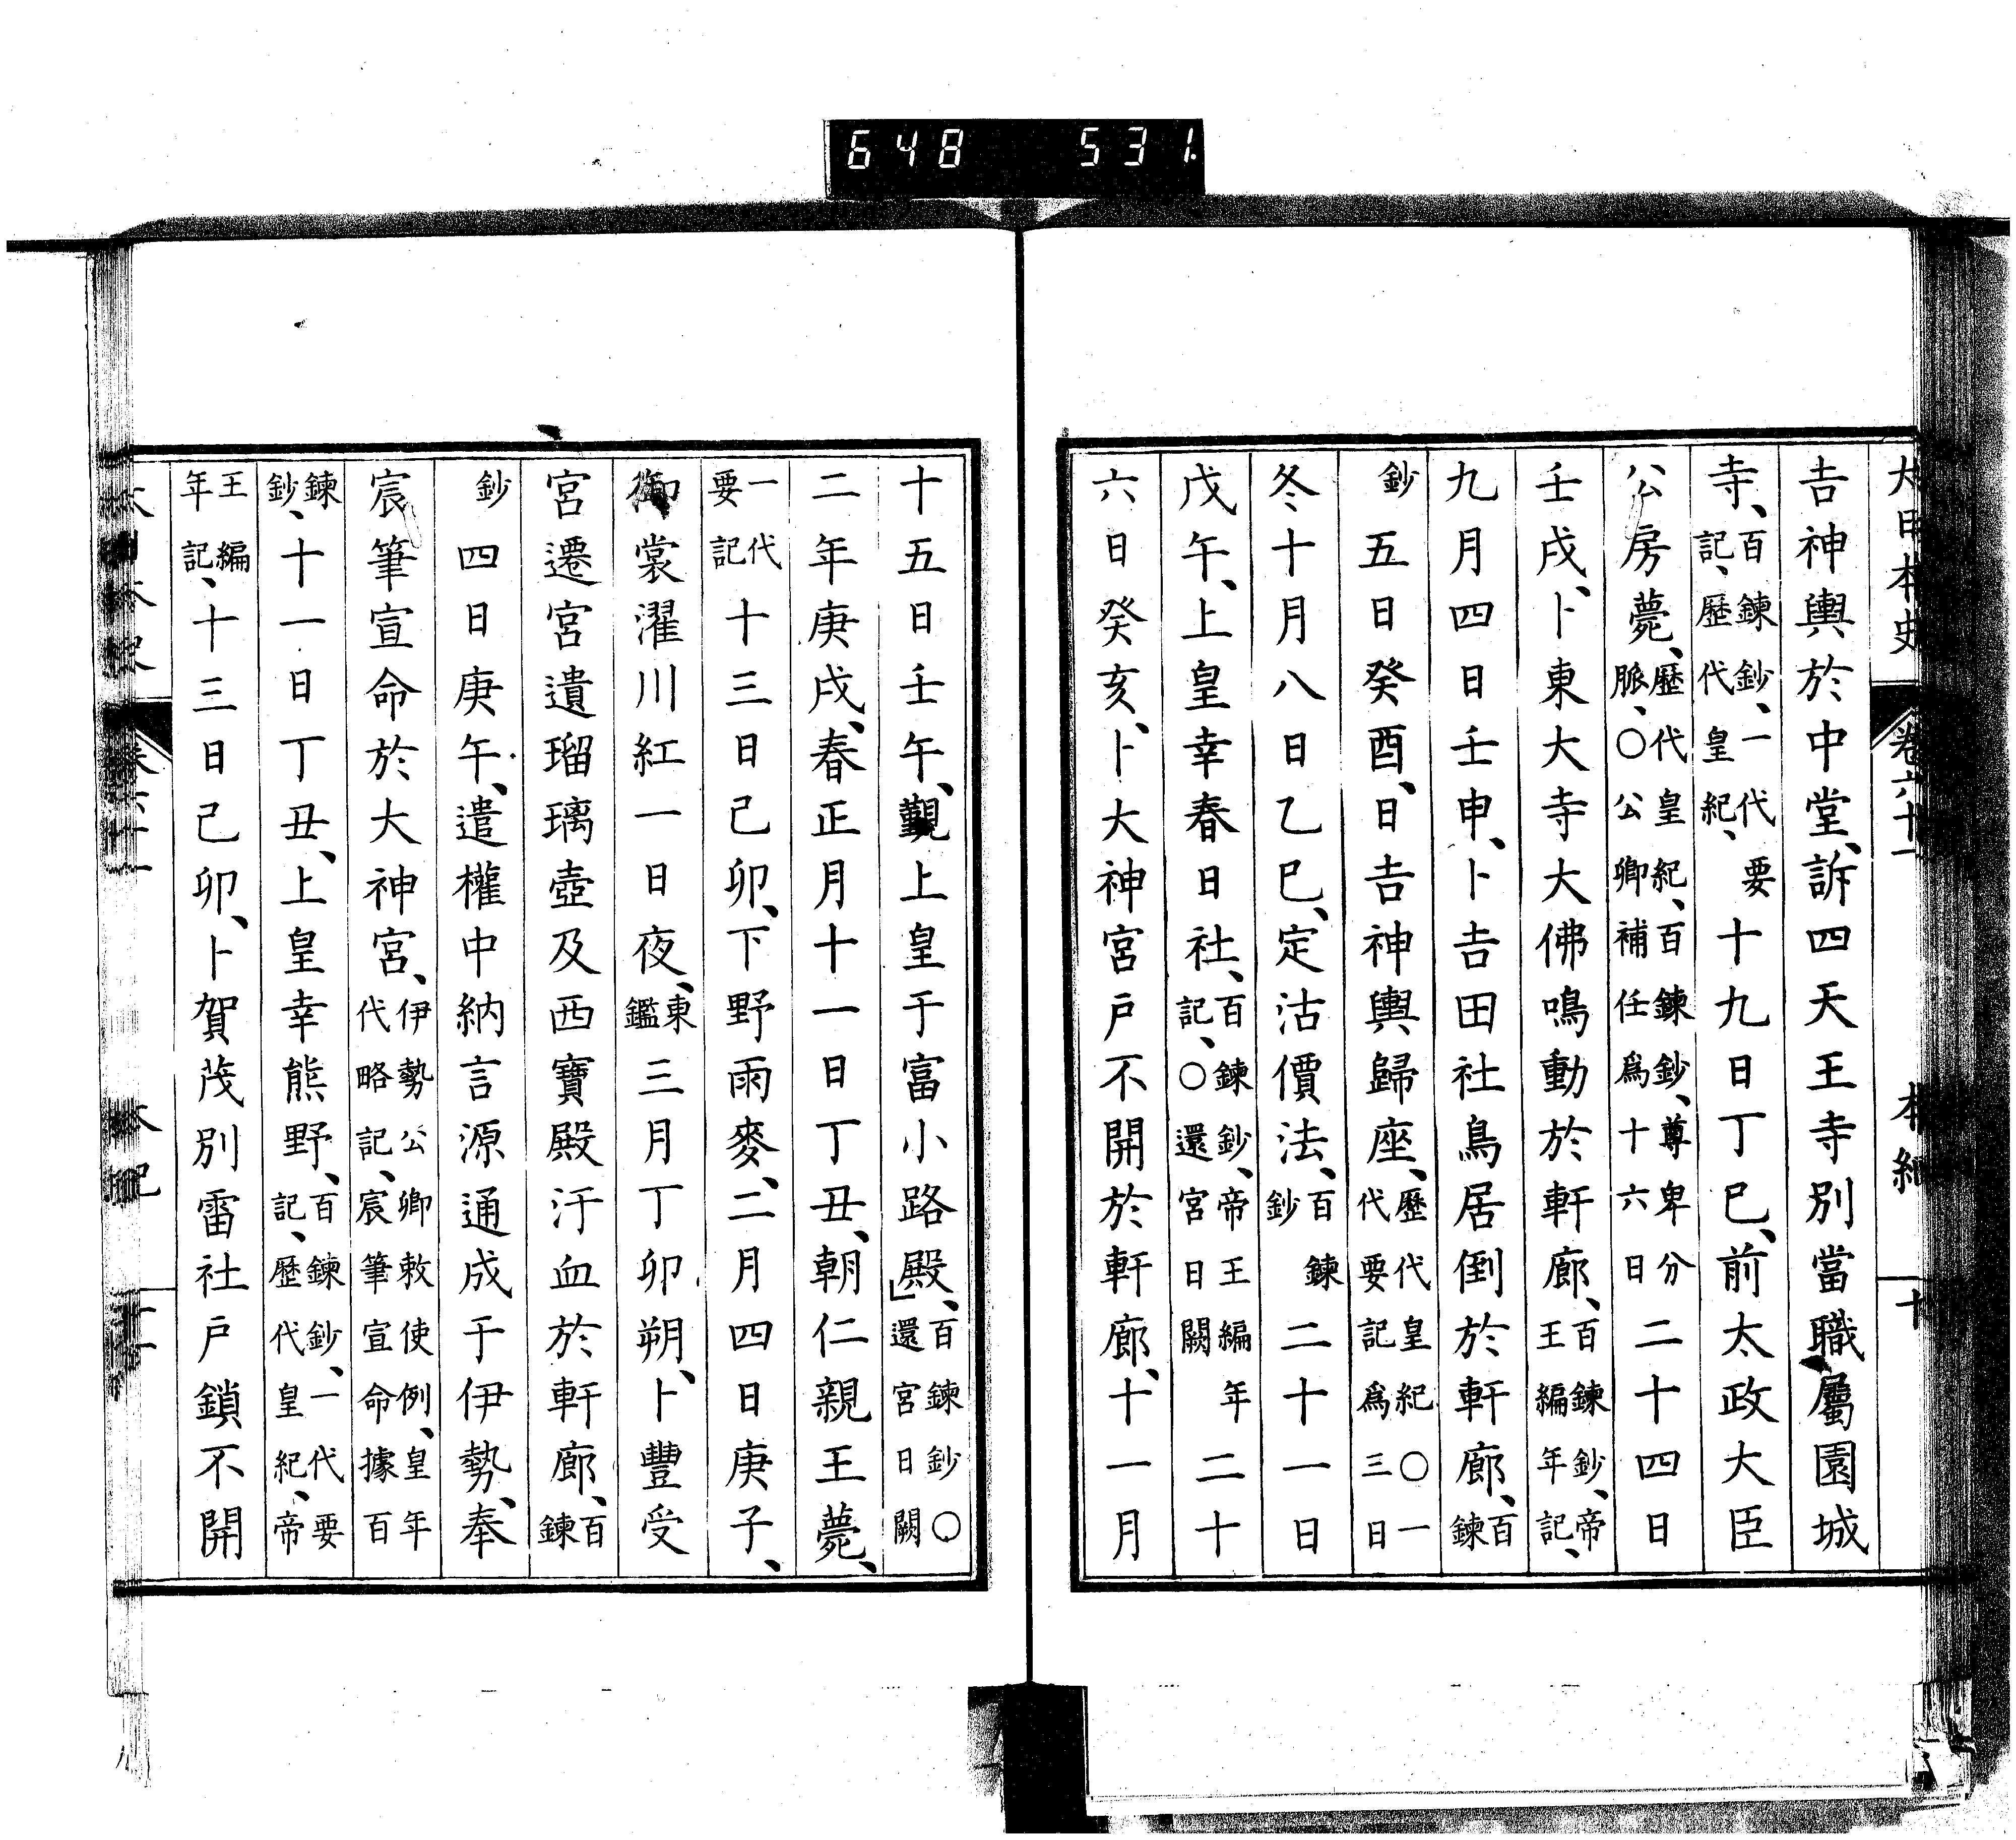 648 531
大日本史 卷六十一 本紀 十
吉神輿於中堂、訴四天王寺別當職屬園城
寺、百鍊鈔、一代要記、歷代皇紀、十九日丁巳、前太政大臣
公房薨、歷代皇紀、百鍊鈔、尊卑分脈、○公卿補任爲十六日二十四日
壬戌、卜東大寺大佛鳴動於軒廊、百鍊鈔、帝王編年記、
九月四日壬申、卜吉田社鳥居倒於軒廊、百鍊
鈔五日癸酉、日吉神輿歸座、歷代皇紀○一代要記爲三日
冬十月八日乙巳、定沽價法、百鍊鈔二十一日
戊午、上皇幸春日社、百鍊鈔、帝王編年記、○還宮日闕二十
六日癸亥、卜大神宮戸不開於軒廊、十一月
十五日壬午、覲上皇于富小路殿、百鍊鈔○還宮日闕
二年庚戌、春正月十一日丁丑、朝仁親王薨、
一代要記十三日己卯、下野雨麥、二月四日庚子、
御裳濯川紅一日夜、東鑑三月丁卯朔、卜豐受
宮遷宮遺瑠璃壺及西寶殿汙血於軒廊、百鍊
鈔四日庚午、遣權中納言源通成于伊勢、奉
宸筆宣命於大神宮、伊勢公卿敕使例、皇年代略記、宸筆宣命據百
鍊鈔、十一日丁丑、上皇幸熊野、百鍊鈔、一代要記、歷代皇紀、帝
王編年記、十三日己卯、卜賀茂別雷社戸鎖不開